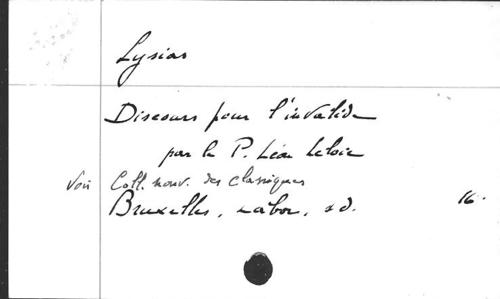 Lysias
Discours pour l'invalide
par le P. Léon Leloir
Voir Coll. nouv. des classiques
Bruxelles, Labor, s d. 16.